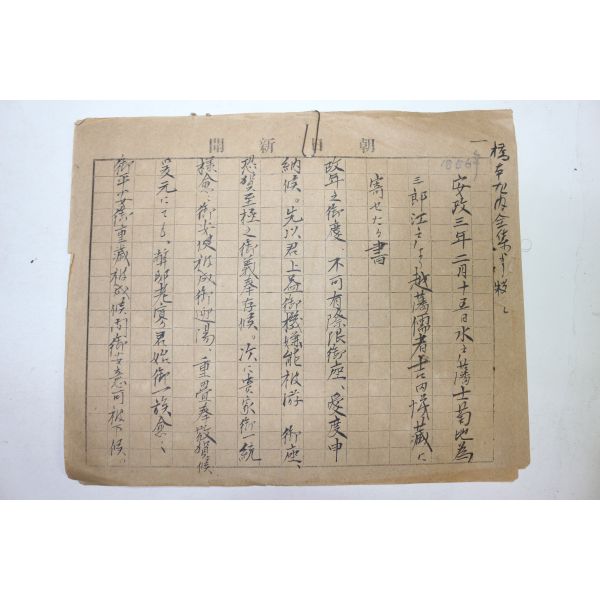 橋本左内全集ニ收ム
1856年
安政三年二月十五日水戸藩士菊地為
三郎江戸より越藩儒者吉田悌藏に
寄せたる書
改年之御慶、不可有際限御座、愛度申
納候。先以君上益御機嫌能被游御座、
恐賀至極之御義奉存候。次に貴家御一統
樣愈御安健被成御迎湯、重疊奉敬賀候、
爰元にても、
老寡君始御一族愈々
御平安御重歳被致候間御安意可被下候。
朝日新聞